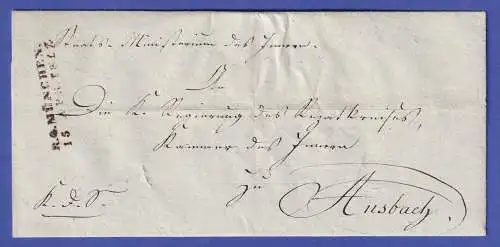 Staats-Ministerium des Innern.
R.4. MÜNCHEN.
15 APR. 1822
An
Die K. Regierung des Rezatkreises,
Kammer des Innern
zu
K. d. S.
Ansbach.